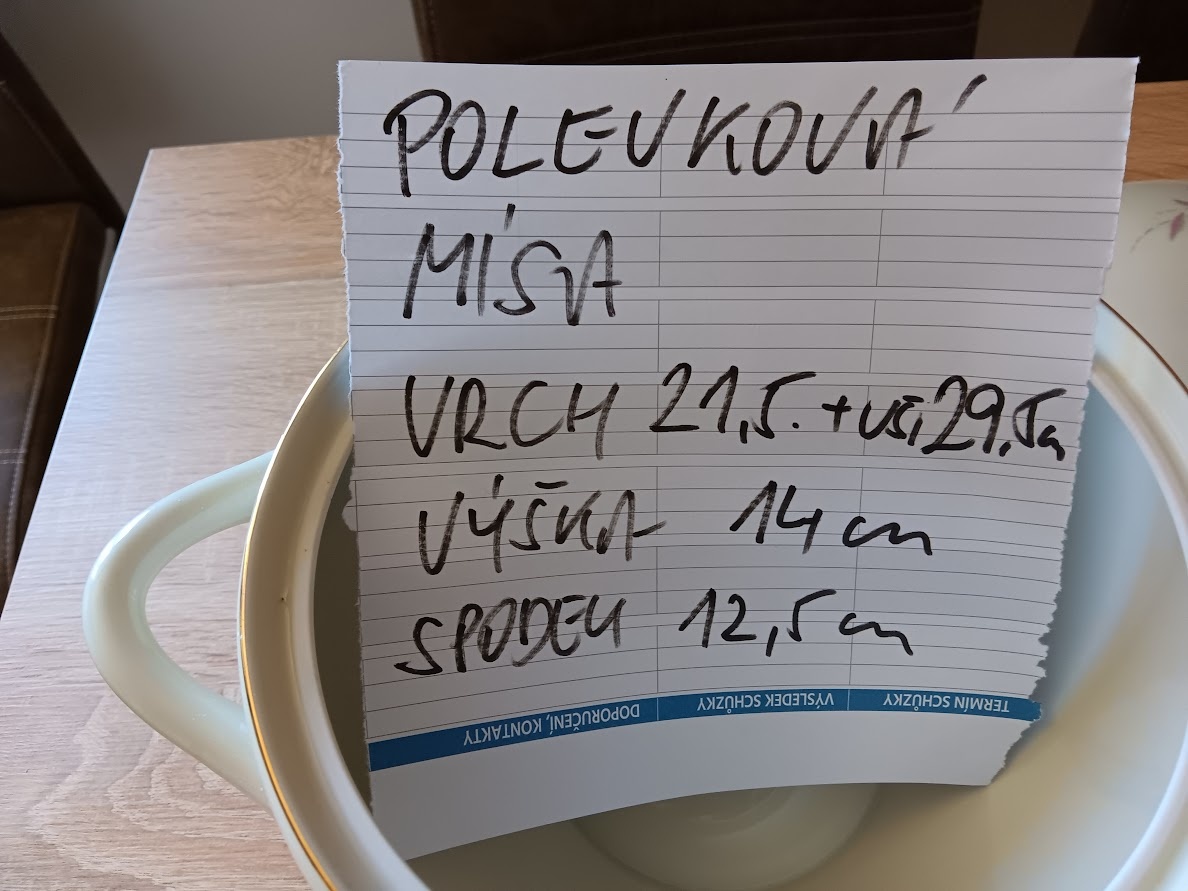 POLEVKOVÁ
MÍSA
VRCH 21,5. + UŠI 29,5cm
VÝŠKA 14 cm
SPODEK 12,5 cm
DOPORUČENÍ, KONTAKTY
VÝSLEDEK SCHŮZKY
TERMÍN SCHŮZKY